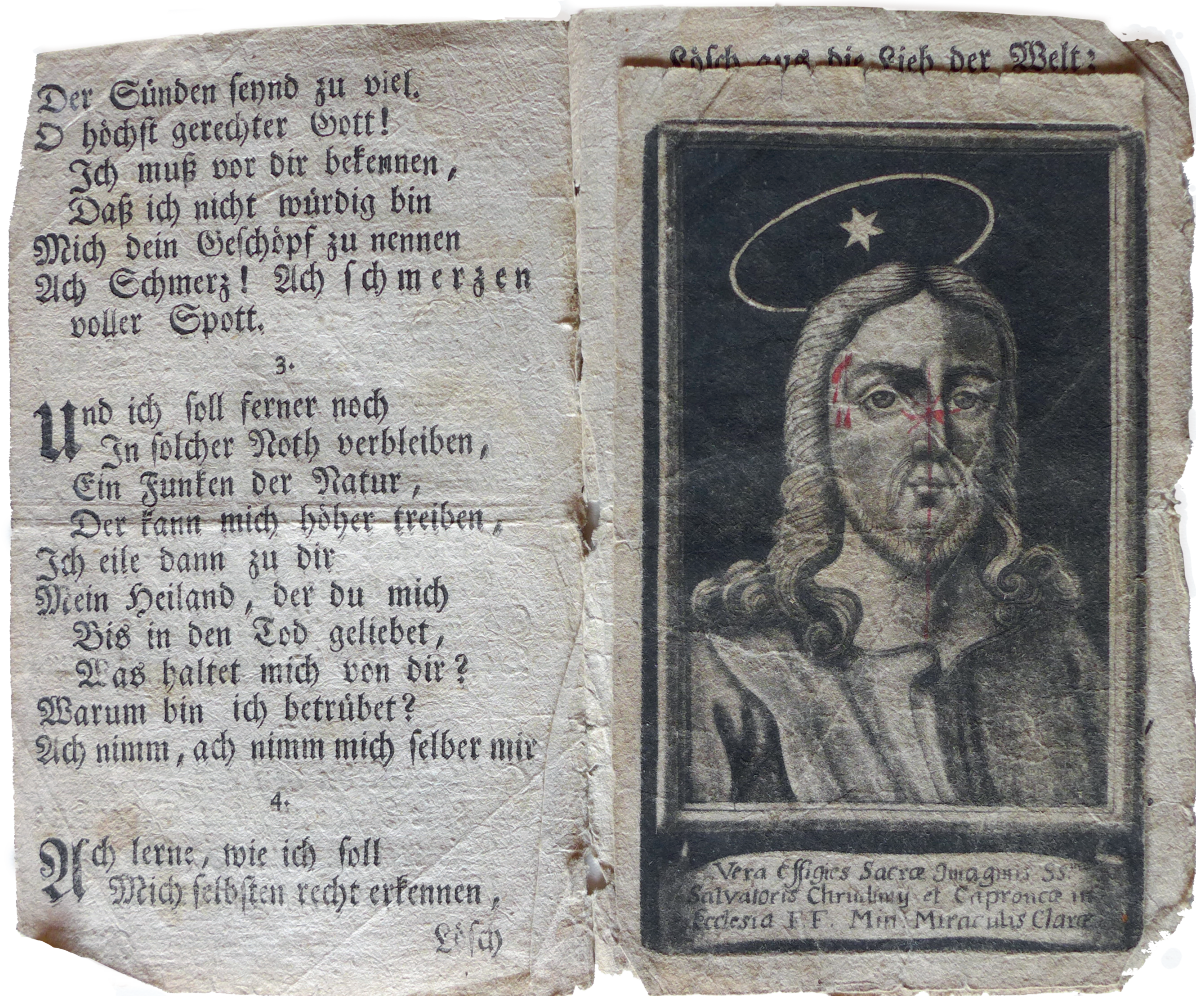 Der Sünden seynd zu viel.
O höchst gerechter Gott!
Ich muß vor dir bekennen,
Daß ich nicht würdig bin
Mich dein Geschöpf zu nennen
Ach Schmerz! Ach schmerzen
voller Spott.
3.
Und ich soll ferner noch
In solcher Noth verbleiben,
Ein Funken der Natur,
Der kann mich höher treiben,
Ich eile dann zu dir
Mein Heiland, der du mich
Bis in den Tod geliebet,
Was haltet mich von dir?
Warum bin ich betrübet?
Ach nimm, ach nimm mich selber mir
4.
Ach lerne, wie ich soll
Mich selbsten recht erkennen,
Lösch
Lösch aus die Lieb der Welt:
Vera Effigies Sacræ Imaginis SS.
Salvatoris et Caproncæ in
Ecclesia F F. Min Miraculis Claræ